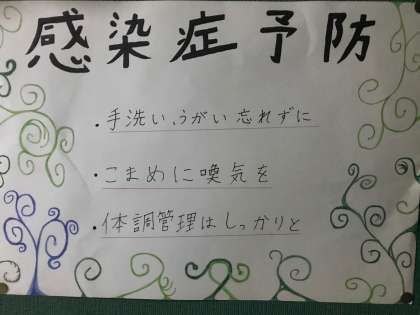 感染症予防
・手洗い、うがい忘れずに
・こまめに喚気を
・体調管理はしっかりと